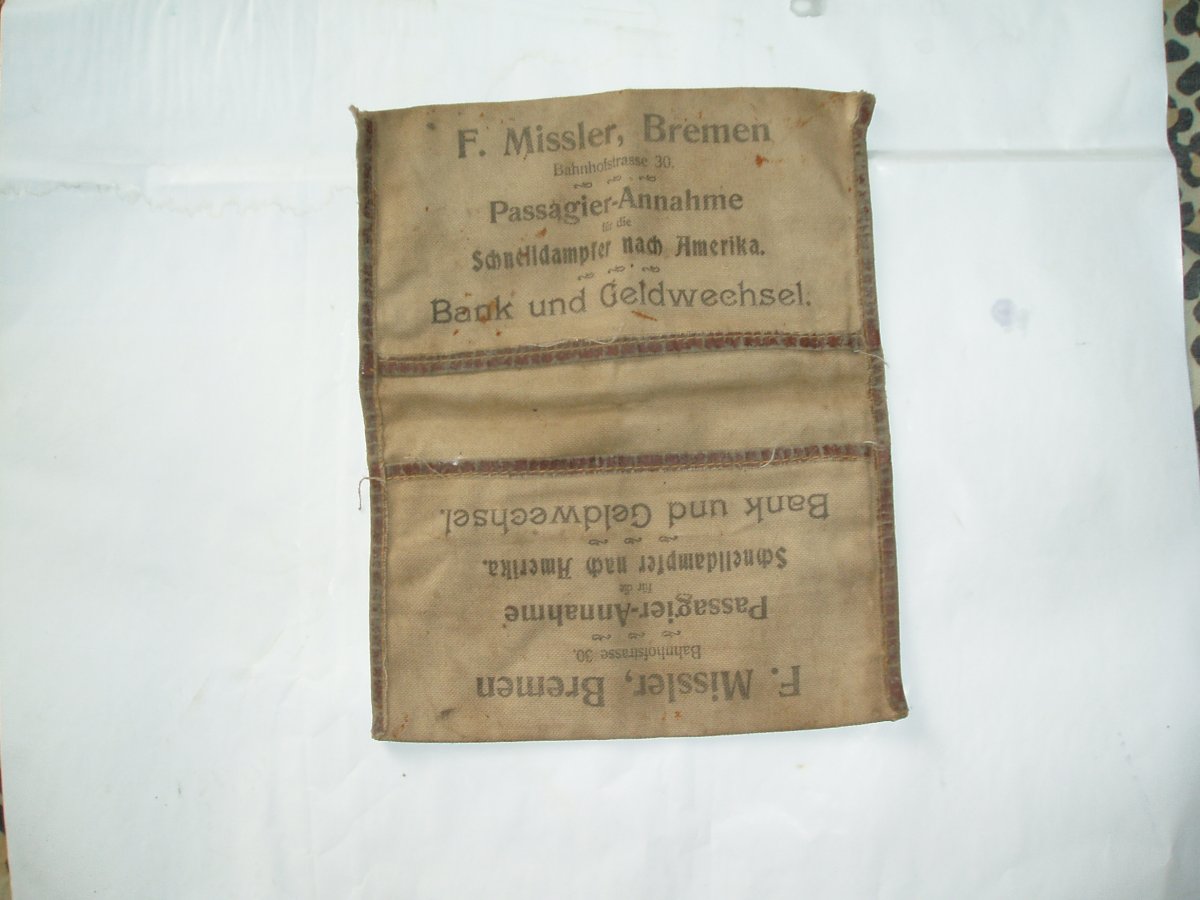 F. Missler, Bremen
Bahnhofstrasse 30.
Passagier-Annahme
für die
Schnelldampfer nach Amerika.
Bank und Geldwechsel.
F. Missler, Bremen
Bahnhofstrasse 30.
Passagier-Annahme
für die
Schnelldampfer nach Amerika.
Bank und Geldwechsel.